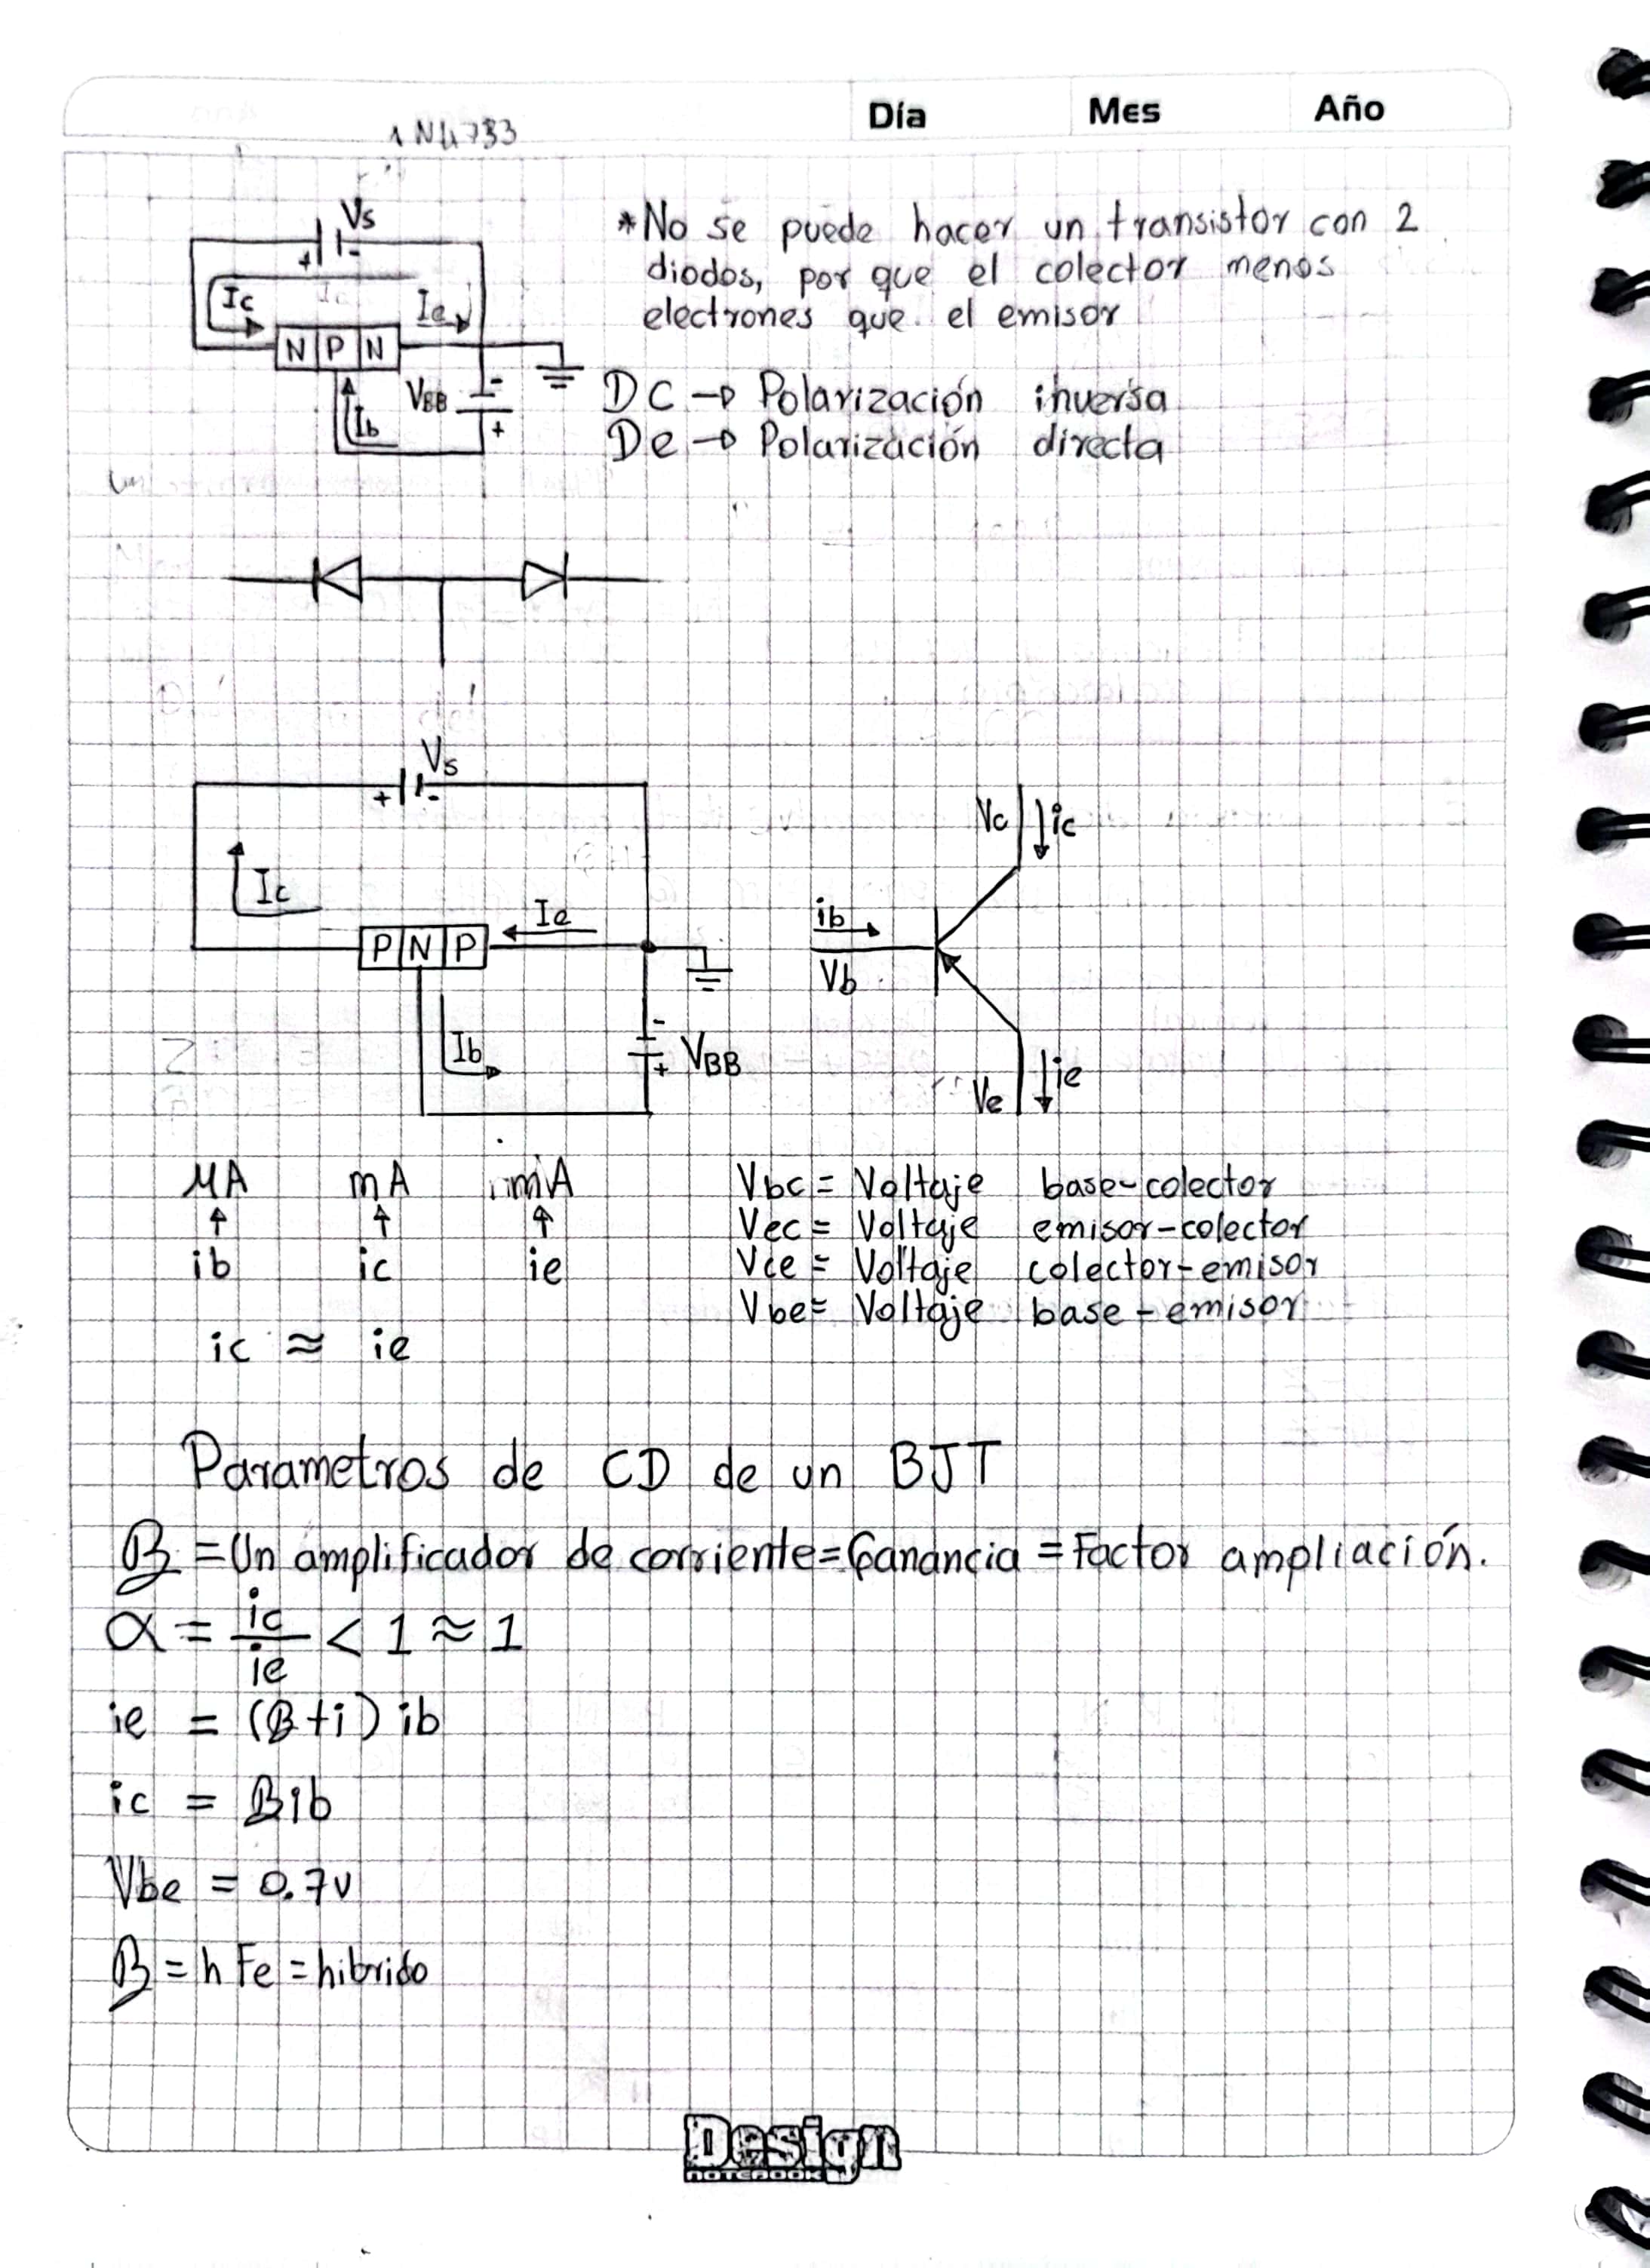 Día Mes Año
1N4733
Vs
+ -
Ic
Ie
N P N
VBB
-
+
Ib
*No se puede hacer un transistor con 2
diodos, por que el colector menos
electrones que el emisor
DC → Polarización inversa
De → Polarización directa
Vs
+ -
Ic
Ie
P N P
Ib
-
+
VBB
Vc ic
ib
Vb
Ve ie
μA mA mA
↑ ↑ ↑
ib ic ie
ic ≈ ie
Vbc = Voltaje base-colector
Vec = Voltaje emisor-colector
Vce = Voltaje colector-emisor
Vbe = Voltaje base-emisor
Parametros de CD de un BJT
β = Un amplificador de corriente = Ganancia = Factor ampliación.
α = ic/ie < 1 ≈ 1
ie = (β+i) ib
ic = βib
Vbe = 0.7v
β = hFe = hibrido
Design
NOTEBOOK